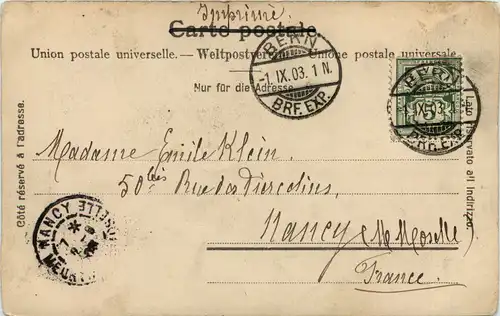 Imprimé.
Carte postale
Union postale universelle. — Weltpostverein — Unione postale universale.
Nur für die Adresse
BERN
-1.IX.03.1 N.
BRF. EXP.
BERN
IX.
BRF. EXP.
5
Côté réservé à l'adresse.
Lato riservato all' indirizzo.
Madame Emile Klein.
50 bis Rue des
Nancy (M. Moselle)
France.
NANCY